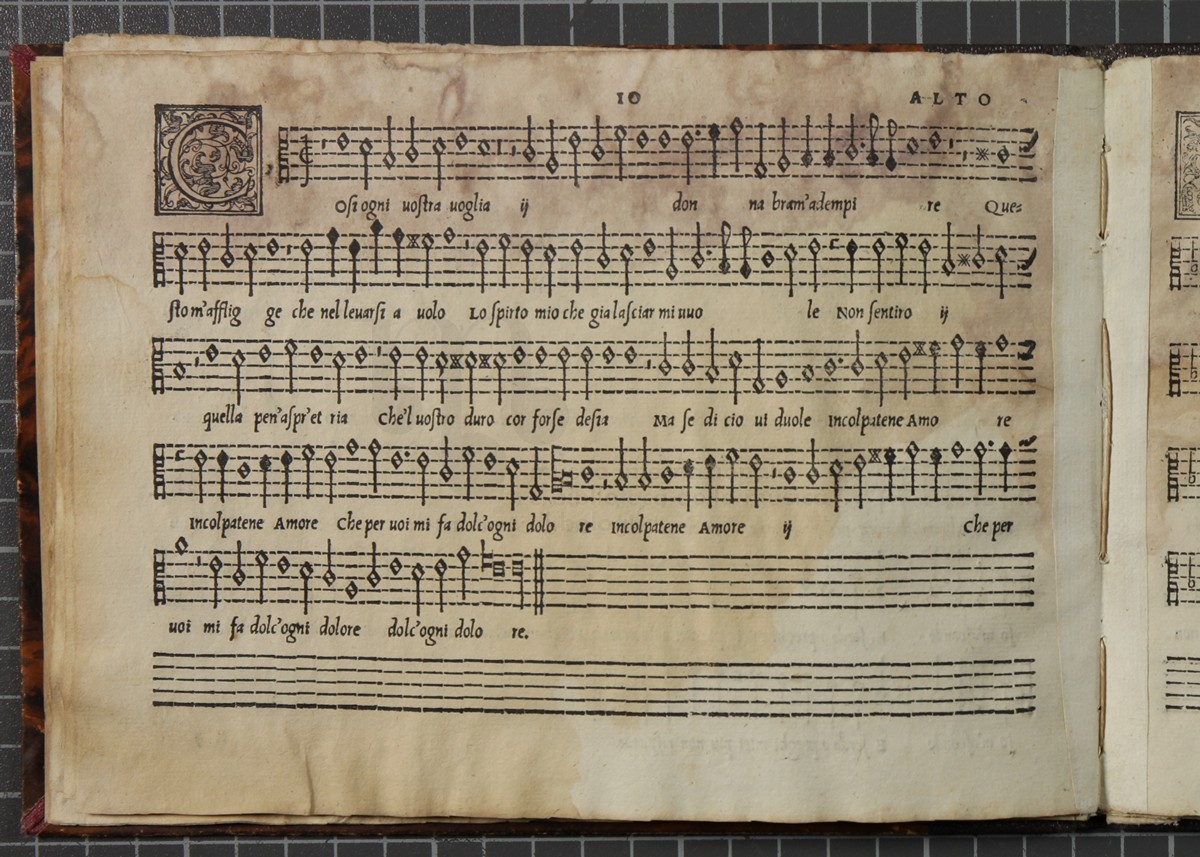 10 ALTO
COsi ogni uostra uoglia ij don na bram'adempi re Que=
sto m'afflig ge che nel leuarsi a uolo Lo spirto mio che gia lasciar mi uuo le Non sentiro ij
quella pen'aspr'et ria Che'l uostro duro cor forse desia Ma se di cio ui duole Incolpatene Amo re
Incolpatene Amore Che per uoi mi fa dolc'ogni dolo re Incolpatene Amore ij Che per
uoi mi fa dolc'ogni dolore dolc'ogni dolo re.